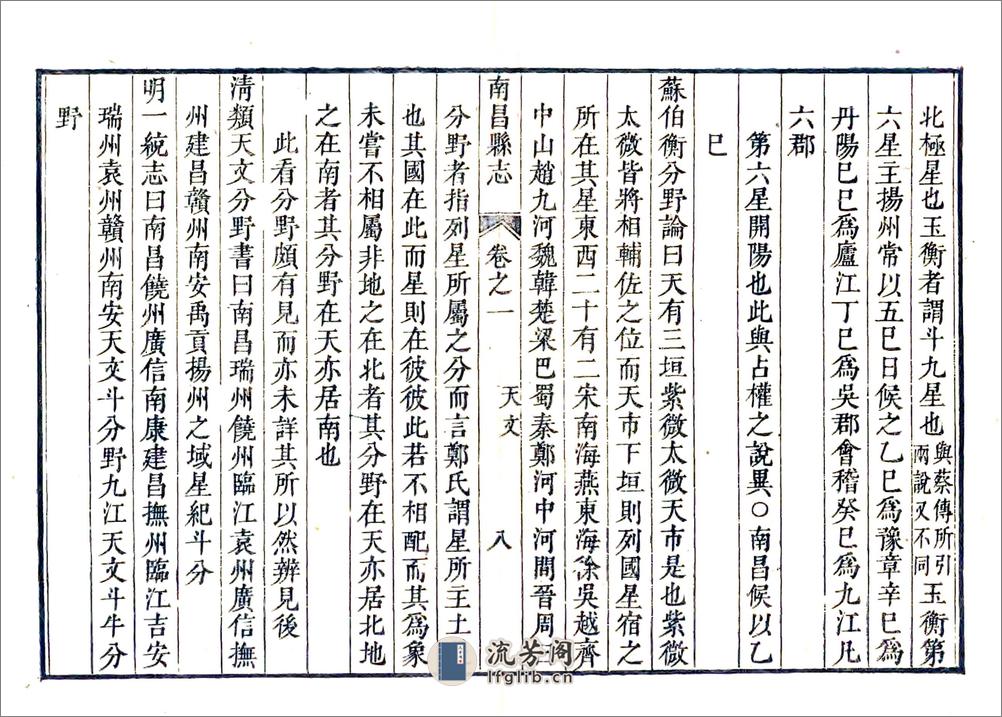 北極星也玉衡者謂斗九星也與蔡傳所引兩說又不同玉衡第
六星主揚州常以五巳日候之乙巳爲豫章辛巳爲
丹陽己巳爲廬江丁巳爲吳郡會稽癸巳爲九江凡
六郡
第六星開陽也此與占權之說異○南昌候以乙
巳
蘇伯衡分野論曰天有三垣紫微太微天市是也紫微
太微皆將相輔佐之位而天市下垣則列國星宿之
所在其星東西二十有二宋南海燕東海徐吳越齊
中山趙九河魏韓楚梁巴蜀秦鄭河中河間晉周
南昌縣志 卷之一 天文 八
分野者指列星所屬之分而言鄭氏謂星所主土
也其國在此而星則在彼彼此若不相配而其爲象
未嘗不相屬非地之在北者其分野在天亦居北地
之在南者其分野在天亦居南也
此看分野頗有見而亦未詳其所以然辨見後
淸類天文分野書曰南昌瑞州饒州臨江袁州廣信撫
州建昌贛州南安禹貢揚州之域星紀斗分
明一統志曰南昌饒州廣信南康建昌撫州臨江吉安
瑞州袁州贛州南安天文斗分野九江天文斗牛分
野
流芳阁
lfglib.cn